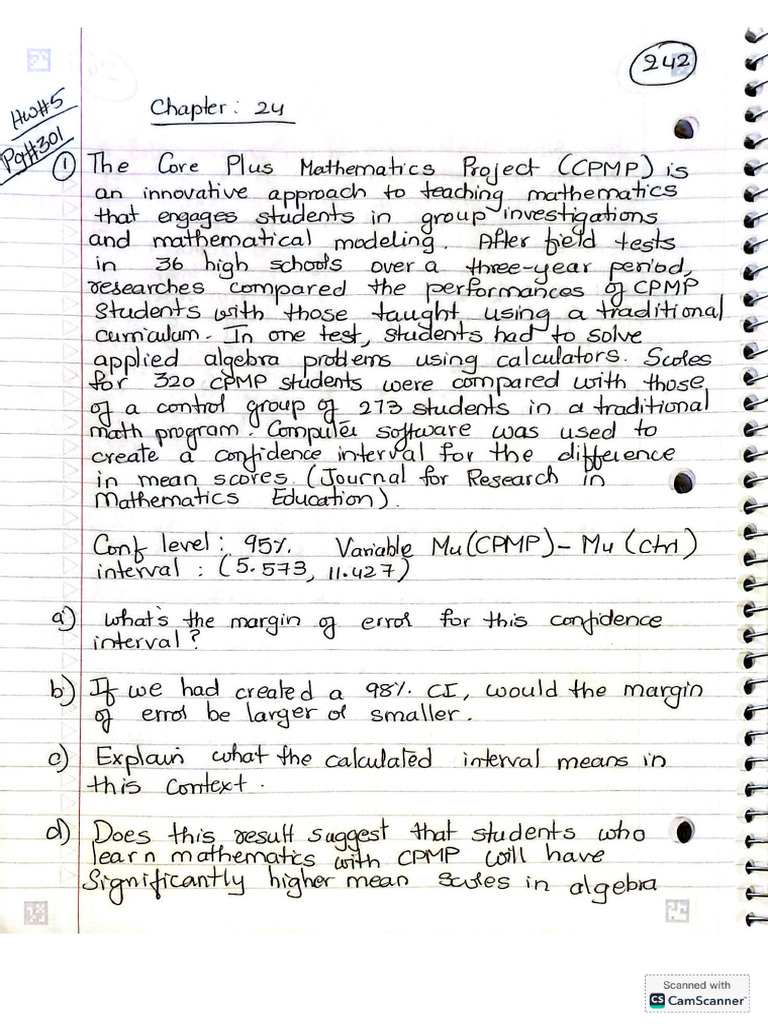 242
HW#5
Pg#301
Chapter: 24
① The Core Plus Mathematics Project (CPMP) is
an innovative approach to teaching mathematics
that engages students in group investigations
and mathematical modeling. After field tests
in 36 high schools over a three-year period,
researches compared the performances of CPMP
students with those taught using a traditional
curriculum. In one test, students had to solve
applied algebra problems using calculators. Scores
for 320 CPMP students were compared with those
of a control group of 273 students in a traditional
math program. Computer software was used to
create a confidence interval for the difference
in mean scores. (Journal for Research in
Mathematics Education).
Conf level: 95%. Variable Mu(CPMP)- Mu (Ctrl)
interval : (5.573, 11.427)
a) what's the margin of error for this confidence
interval?
b) If we had created a 98% CI, would the margin
of error be larger or smaller.
c) Explain what the calculated interval means in
this context.
d) Does this result suggest that students who
learn mathematics with CPMP will have
Significantly higher mean scores in algebra
Scanned with
CS CamScanner